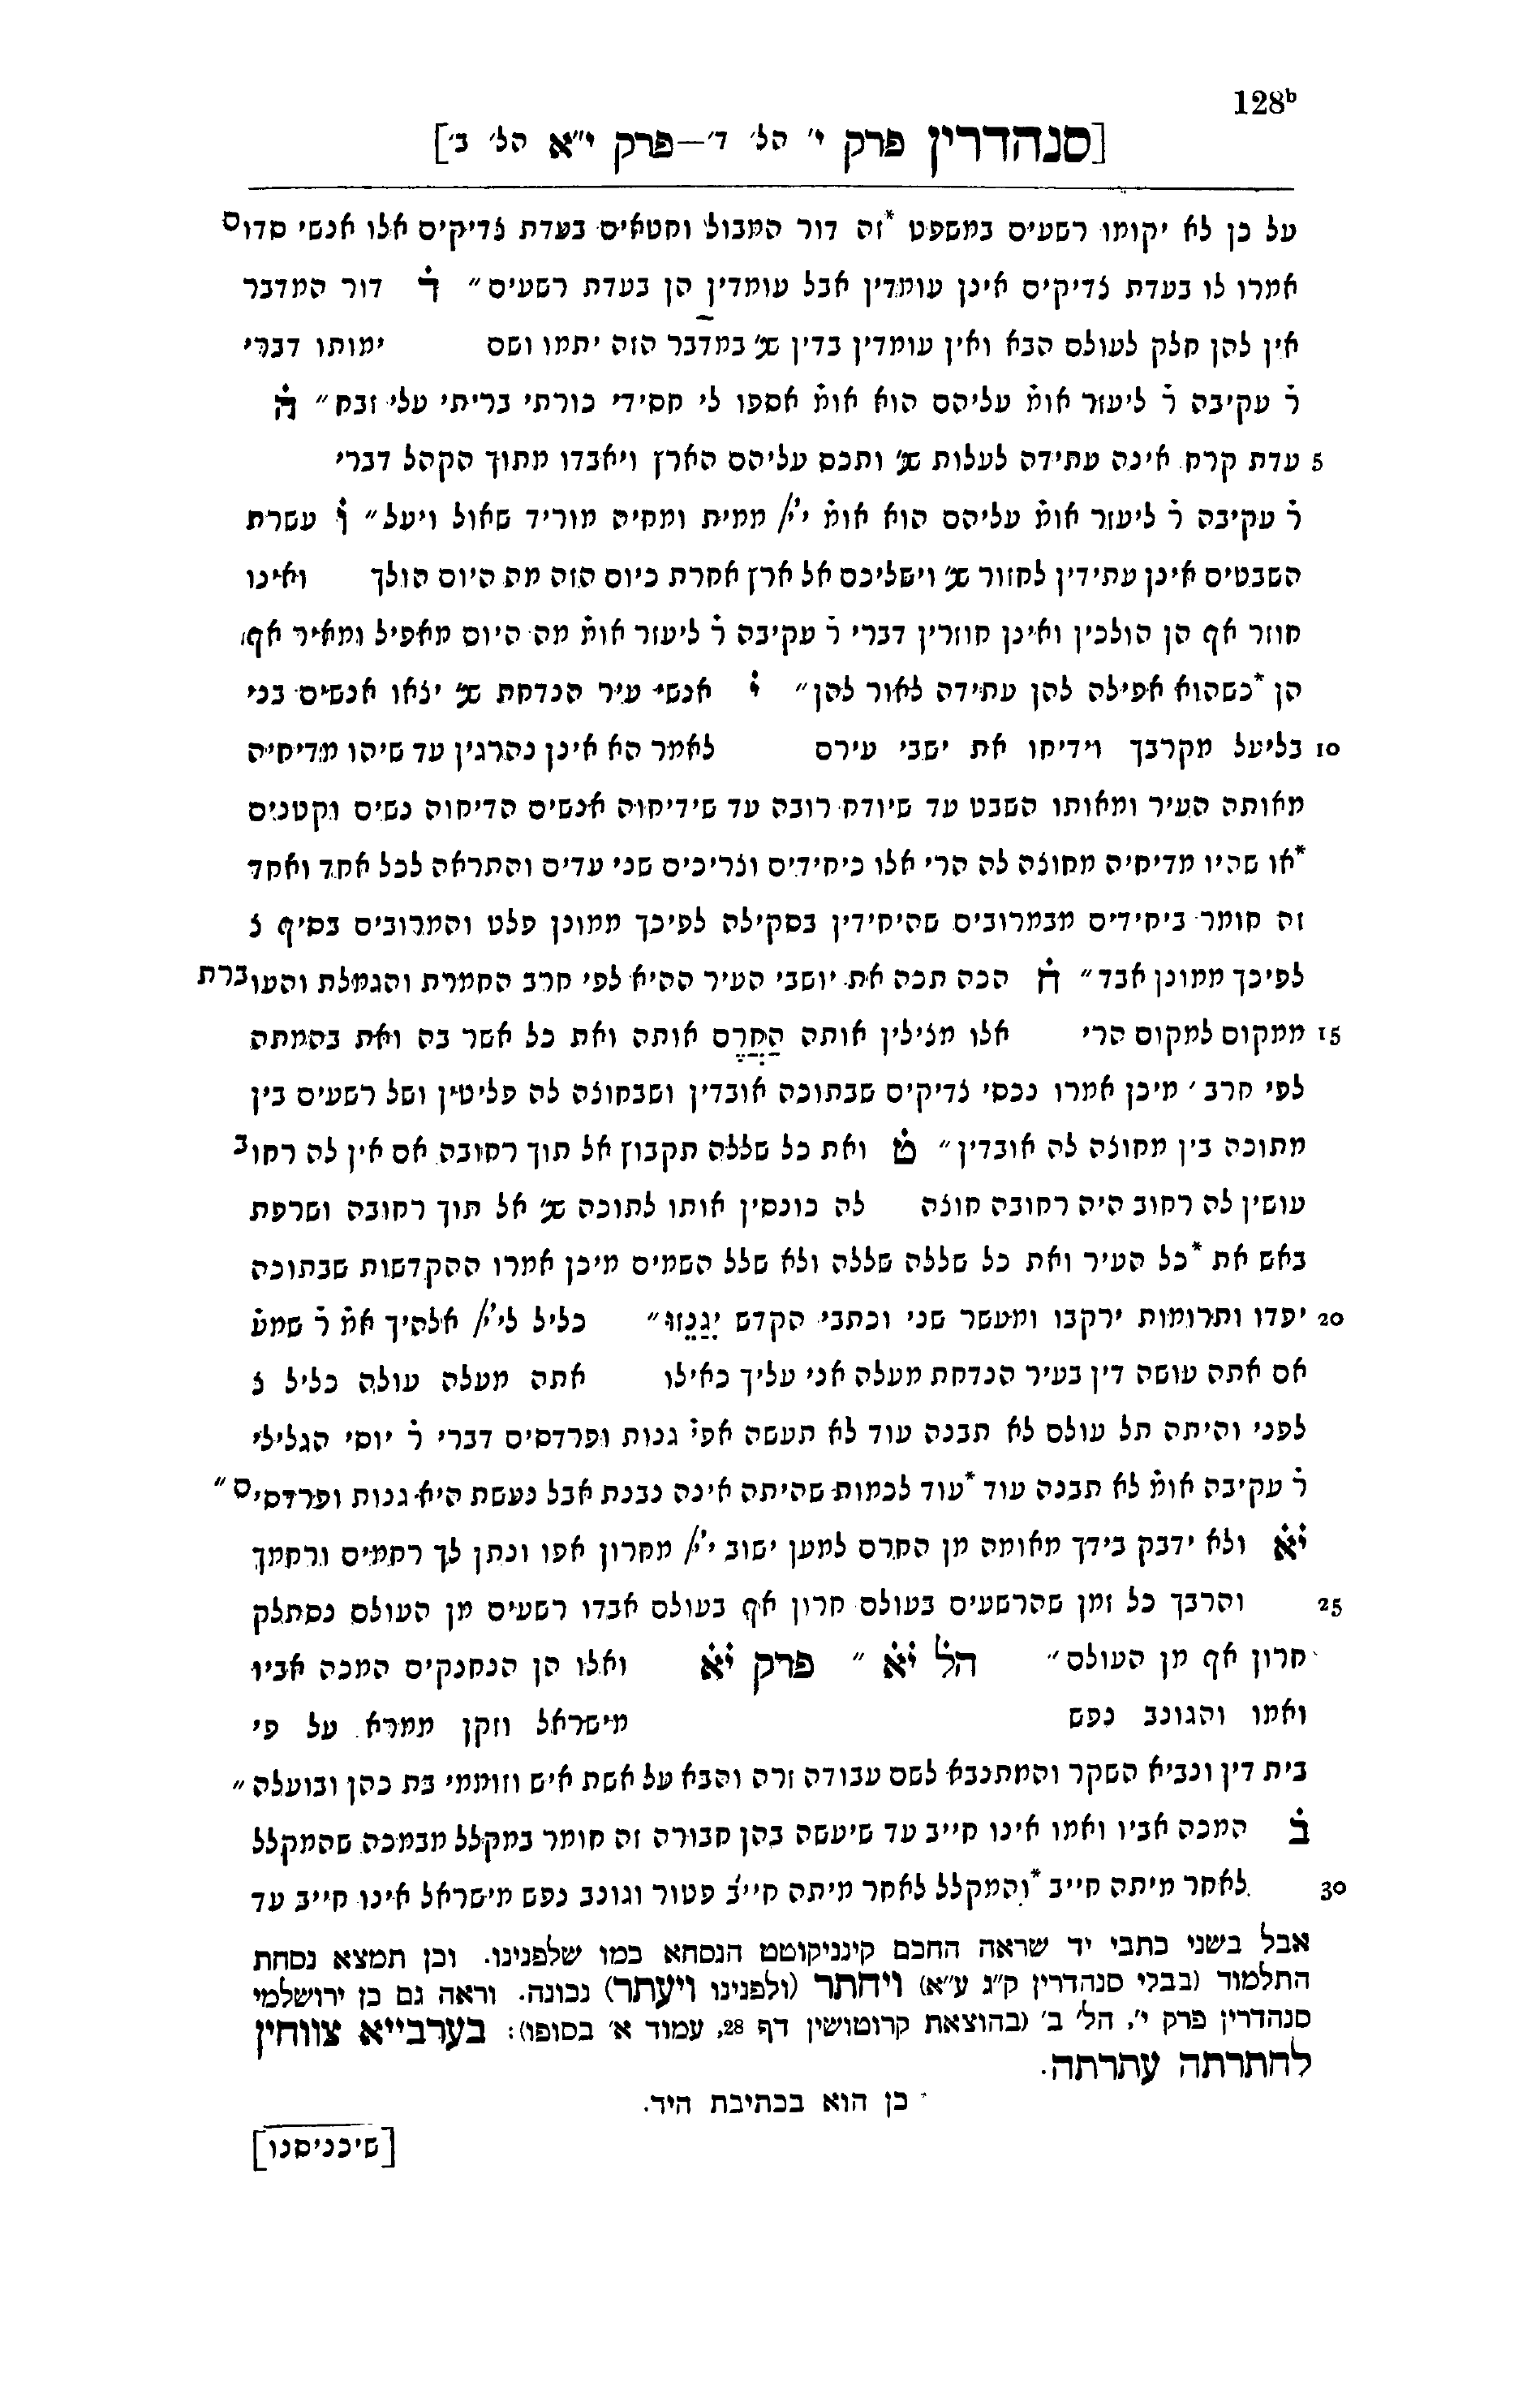 128b
[סנהדרין פרק י' הל' ד'—פרק י"א הל' ב']
על כן לא יקומו רשעים במשפט *זה דור המבול וחטאים בעדת צדיקים אלו אנשי סדום
אמרו לו בעדת צדיקים אינן עומדין אבל עומדין הן בעדת רשעים״ ד דור המדבר
אין להן חלק לעולם הבא ואין עומדין בדין שנ' במדבר הזה יתמו ושם ימותו דברי
ר עקיבה ר ליעזר אומ עליהם הוא אומ אספו לי חסידי כורתי בריתי עלי זבח״ ה
5 עדת קרח אינה עתידה לעלות שנ' ותכס עליהם הארץ ויאבדו מתוך הקהל דברי
ר עקיבה ר ליעזר אומ עליהם הוא אומ יי/ ממית ומחיה מוריד שאול ויעל״ ו עשרת
השבטים אינן עתידין לחזור שנ' וישליכם אל ארץ אחרת כיום הזה מה היום הולך ואינו
חוזר אף הן הולכין ואינן חוזרין דברי ר עקיבה ר ליעזר אומ מה היום מאפיל ומאיר אף
הן *כשהוא אפילה להן עתידה לאור להן״ י אנשי עיר הנדחת שנ' יצאו אנשים בני
10 בליעל מקרבך וידיחו את ישבי עירם לאמר הא אינן נהרגין עד שיהו מדיחיה
מאותה העיר ומאותו השבט עד שיודח רובה עד שידיחוה אנשים הדיחוה נשים וקטנים
*או שהיו מדיחיה מחוצה לה הרי אלו כיחידים וצריכים שני עדים והתראה לכל אחד ואחד
זה חומר ביחידים מבמרובים שהיחידין בסקילה לפיכך ממונן פלט והמרובים בסיף צ
לפיכך ממונן אבד״ ח הכה תכה את יושבי העיר ההיא לפי חרב החמרת והגמלת והעוברת
15 ממקום למקום הרי אלו מצילין אותה החרם אותה ואת כל אשר בה ואת בהמתה
לפי חרב ׳ מיכן אמרו נכסי צדיקים שבתוכה אובדין ושבחוצה לה פליטין ושל רשעים בין
מתוכה בין מחוצה לה אובדין״ ט ואת כל שללה תקבוץ אל תוך רחובה אם אין לה רחוב
עושין לה רחוב היה רחובה חוצה לה כונסין אותו לתוכה שנ' אל תוך רחובה ושרפת
באש את *כל העיר ואת כל שללה שללה ולא שלל השמים מיכן אמרו ההקדשות שבתוכה
20 יפדו ותרומות ירקבו ומעשר שני וכתבי הקדש יגנזו״ כליל לי'י/ אלהיך אמ ר שמע
אם אתה עושה דין בעיר הנדחת מעלה אני עליך כאילו אתה מעלה עולה כליל צ
לפני והיתה תל עולם לא תבנה עוד לא תעשה אפי גנות ופרדסים דברי ר יוסי הגלילי
ר עקיבה אומ לא תבנה עוד *עוד לכמות שהיתה אינה נבנת אבל נעשת היא גנות ופרדסים״
יא ולא ידבק בידך מאומה מן החרם למען ישוב י'י/ מחרון אפו ונתן לך רחמים ורחמך
25 והרבך כל זמן שהרשעים בעולם חרון אף בעולם אבדו רשעים מן העולם נסתלק
חרון אף מן העולם״ הל יא ״ פרק יא ואלו הן הנחנקים המכה אביו
ואמו והגונב נפש מישראל וזקן ממרא על פי
בית דין ונביא השקר והמתנבא לשם עבודה זרה והבא על אשת איש וזוממי בת כהן ובועלה״
ב המכה אביו ואמו אינו חייב עד שיעשה בהן חבורה זה חומר במקלל מבמכה שהמקלל
30 לאחר מיתה חייב *והמקלל לאחר מיתה חייב פטור וגונב נפש מישראל אינו חייב עד
אבל בשני כתבי יד שראה החכם קינניקוטט הנסחא כמו שלפנינו. וכן תמצא נסחת
התלמוד (בבלי סנהדרין ק"ג ע"א) ויחתר (ולפנינו ויעתר) נכונה. וראה גם כן ירושלמי
סנהדרין פרק י', הל' ב' (בהוצאת קרוטושין דף 28, עמוד א' בסופו): בערבייא צווחין
לחתרתה עתרתה.
* כן הוא בכתיבת היד.
[שיכניסנו]